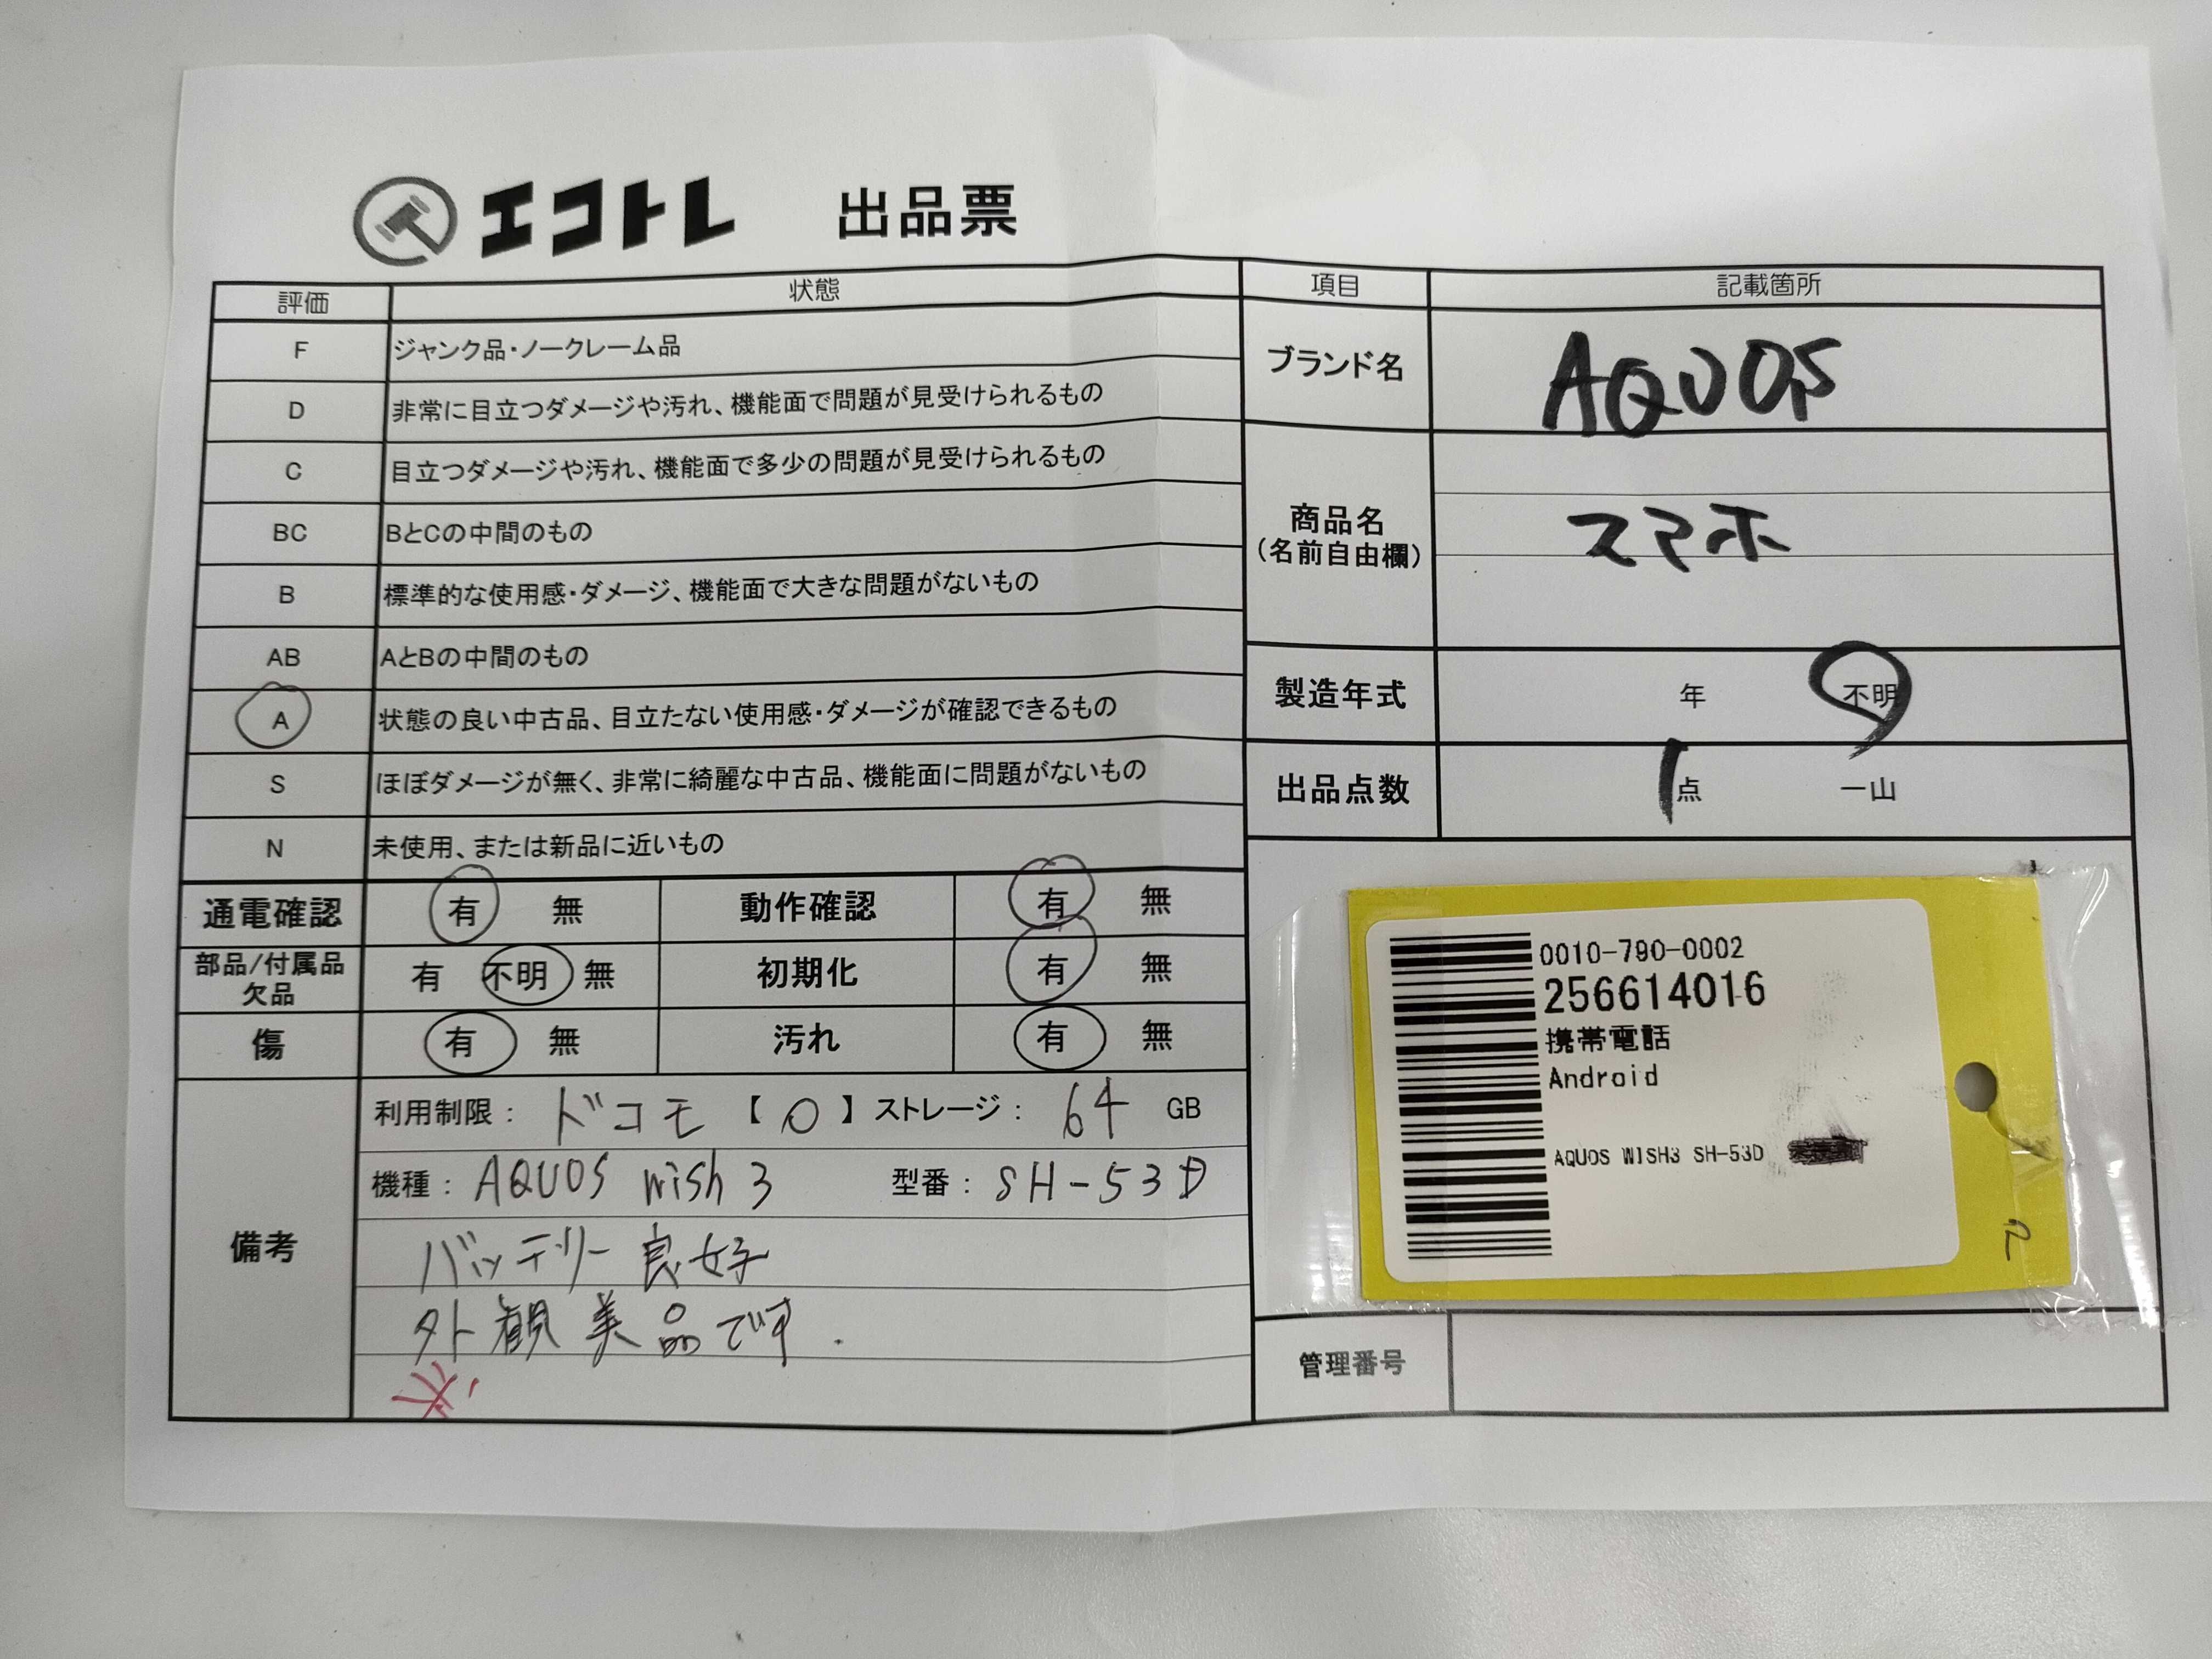 エコトレ 出品票
評価 状態
F ジャンク品・ノークレーム品
D 非常に目立つダメージや汚れ、機能面で問題が見受けられるもの
C 目立つダメージや汚れ、機能面で多少の問題が見受けられるもの
BC BとCの中間のもの
B 標準的な使用感・ダメージ、機能面で大きな問題がないもの
AB AとBの中間のもの
A 状態の良い中古品、目立たない使用感・ダメージが確認できるもの
S ほぼダメージが無く、非常に綺麗な中古品、機能面に問題がないもの
N 未使用、または新品に近いもの
通電確認 有 無 動作確認 有 無
部品/付属品欠品 有 不明 無 初期化 有 無
傷 有 無 汚れ 有 無
備考
利用制限： ドコモ 【 ○ 】 ストレージ： 64 GB
機種： AQUOS wish 3 型番： SH-53D
バッテリー良好
外観美品です.
項目 記載箇所
ブランド名 AQUOS
商品名 スマホ
(名前自由欄)
製造年式 年 不明
出品点数 1点 一山
0010-790-0002
256614016
携帯電話
Android
AQUOS WISH3 SH-53D
2
管理番号